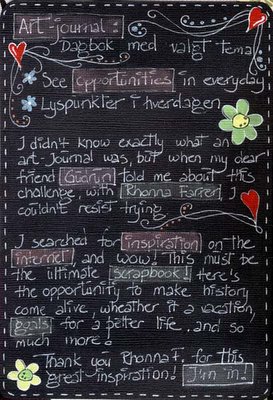 Art-journal:
Dagbok med valgt tema
See opportunities in everyday
Lyspunkter i hverdagen
I didn't know exactly what an
art-journal was, but when my dear
friend Gudrun told me about this
challenge, with Rhonna Farrer, I
couldn't resist trying
I searched for inspiration on the
internet, and wow! This must be
the ultimate scrapbook! Here's
the opportunity to make history
come alive, wheather it a vacation,
goals for a better life.. and so
much more!
Thank you Rhonna F. for this
great inspiration! I'm in!